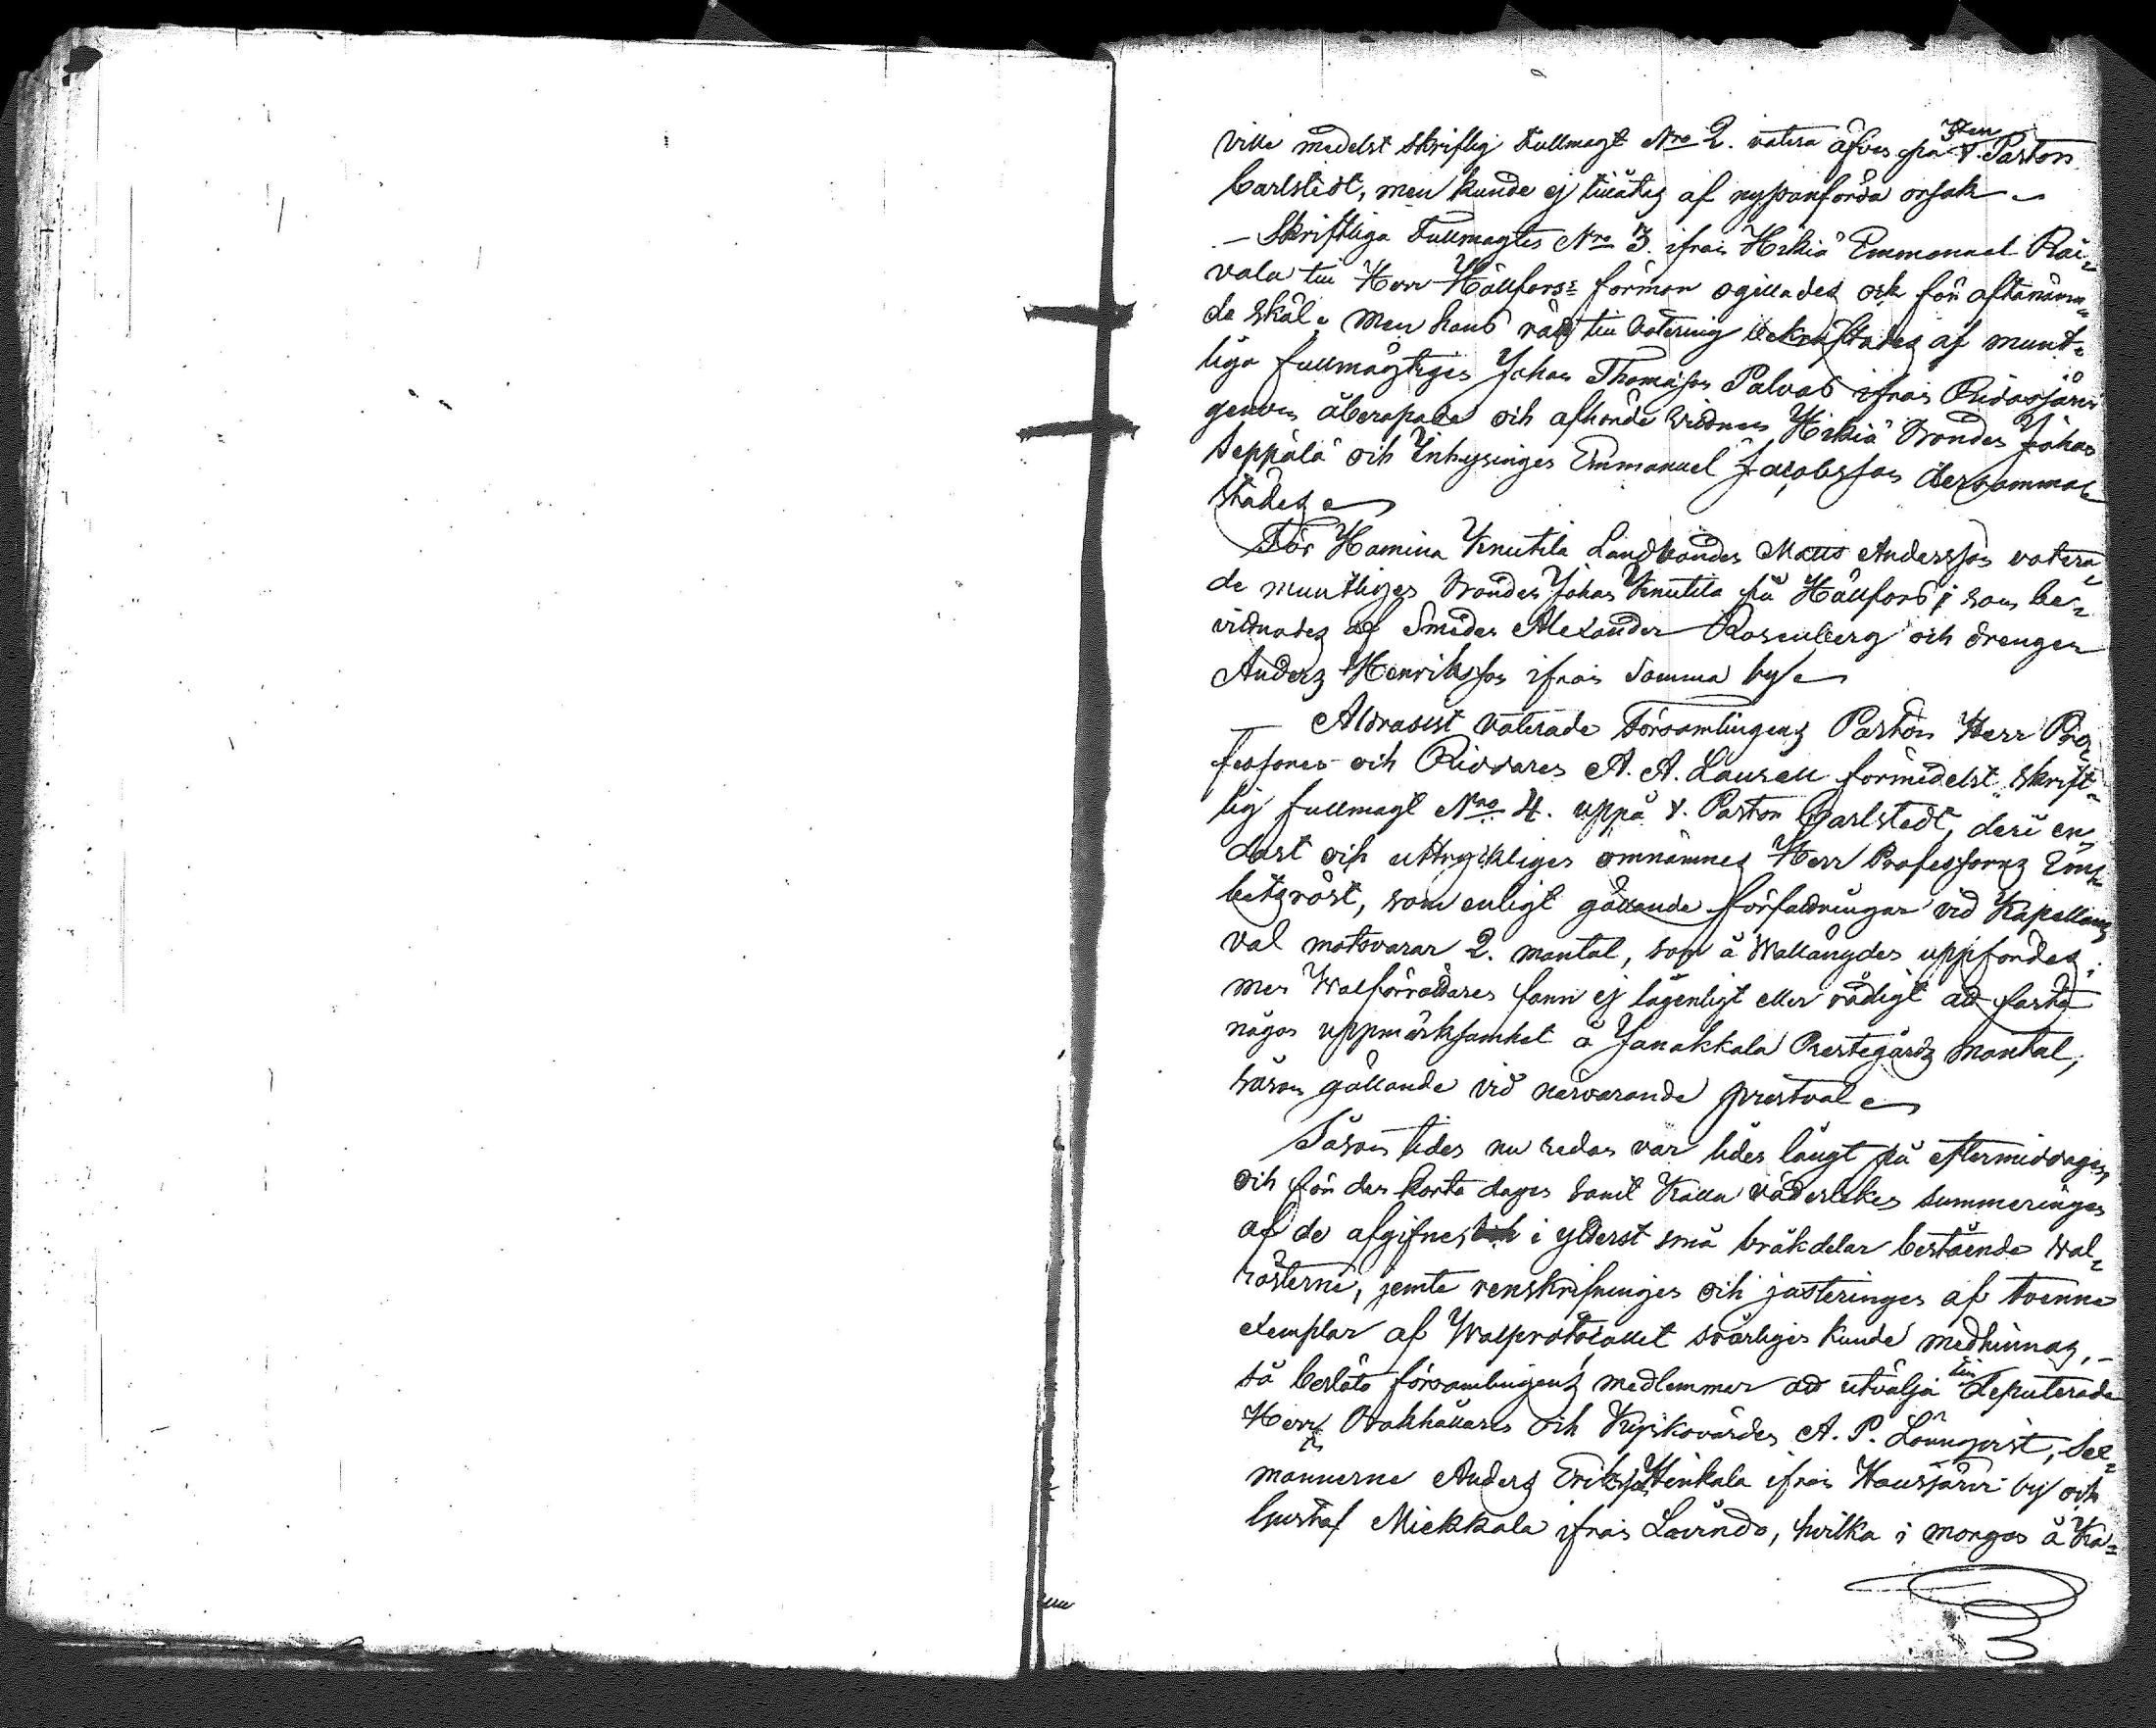 ville medelst skriftlig Fullmagt Nro 2. votera äfven på V. Pastorn
Carlstedt, men kunde ej tillåtas af nyssanförda orsak
— Skriftliga Fullmagten Nro 3. ifrån Hikiä Emmanuel Rai-
vala till Herr Hällfors: förmån ogillades och för oftanämn-
de skäl; men hans röst till votering bekräftades af munt-
liga fullmägtigen Johan Thomasson Palvas ifrån Ridasjärvi
genom åberopade och afhörde vidnen Hikiä Bonden Johan
Seppälä och Inhysingen Emmanuel Jacobsson dersamma-
städes
För Hamina Knutila Landbonden Matts Andersson votera-
de muntligen Bonden Johan Knutila på Hällfors; som be-
vidnades af Smeden Alexander Rosenberg och drengen
Anders Henriksson ifrån samma by
— Aldrasist voterade Församlingens Pastor Herr Pro-
fessoren och Riddaren A. A. Laurell förmedelst skrift-
lig fullmagt Nro 4. uppå V. Pastorn Carlstedt, deri en-
dast och uttryckligen omnämnes Herr Professorns Em-
betsröst, som enligt gällande författningar vid Kapellans
val motsvarar 2. mantal, som å Wallängden uppfördes;
men Walförrättaren fann ej lägenligt eller rådigt att fästa
någon uppmärksamhet å Janakkala Prestegårds mantal,
såsom gällande vid närvarande prestval
Såsom tiden nu redan var liden långt på eftermiddagen,
och för den korta dagen samt kalla väderleken summeringen
af de afgifne, i ytterst små bråkdelar bestående wal-
rösterne, jemte renskrifningen och justeringen af tvenne
exemplar af Walprotocollet svårligen kunde medhinnas, —
så beslöto församlingens medlemmar att utvälja till Deputerade
Herr Bokhållaren och Kyrkovärden A. P. Lönnqvist, Sex-
mannerne Anders Eriksson Heinkala ifrån Hausjärvi by och
Gustaf Miekkala ifrån Lavindo, hvilka i morgon å Ka-